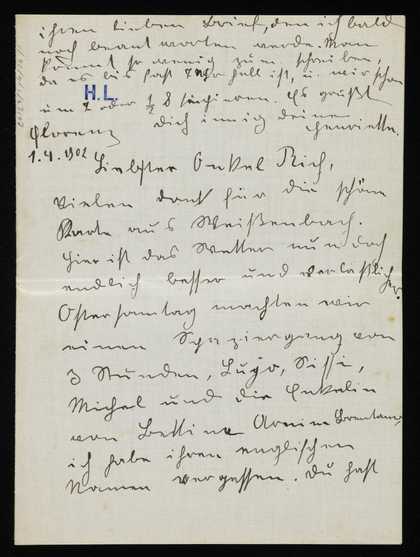 ihren lieben Brief, den ich bald
noch beantworten werde. Man
kommt so wenig zum schreiben,
da es bis fast 7 Uhr hell ist, u. wir schon
um 7 oder ½ 8 Es grüßt
H. L.
Dich innig deine
Henriette.
Florenz
1.4.902
Liebster Onkel Rich,
Vielen dank für die schöne
Karte aus Weißenbach.
Hier ist das Wetter nun doch
endlich besser und verlässlicher.
Ostersonntag machten wir
einen Spaziergang von
3 Stunden, Lujo, Sissi,
Michel und die Enkelin
von Bettine Arnim Brentano,
ich habe ihren englischen
Namen vergessen. Du hast